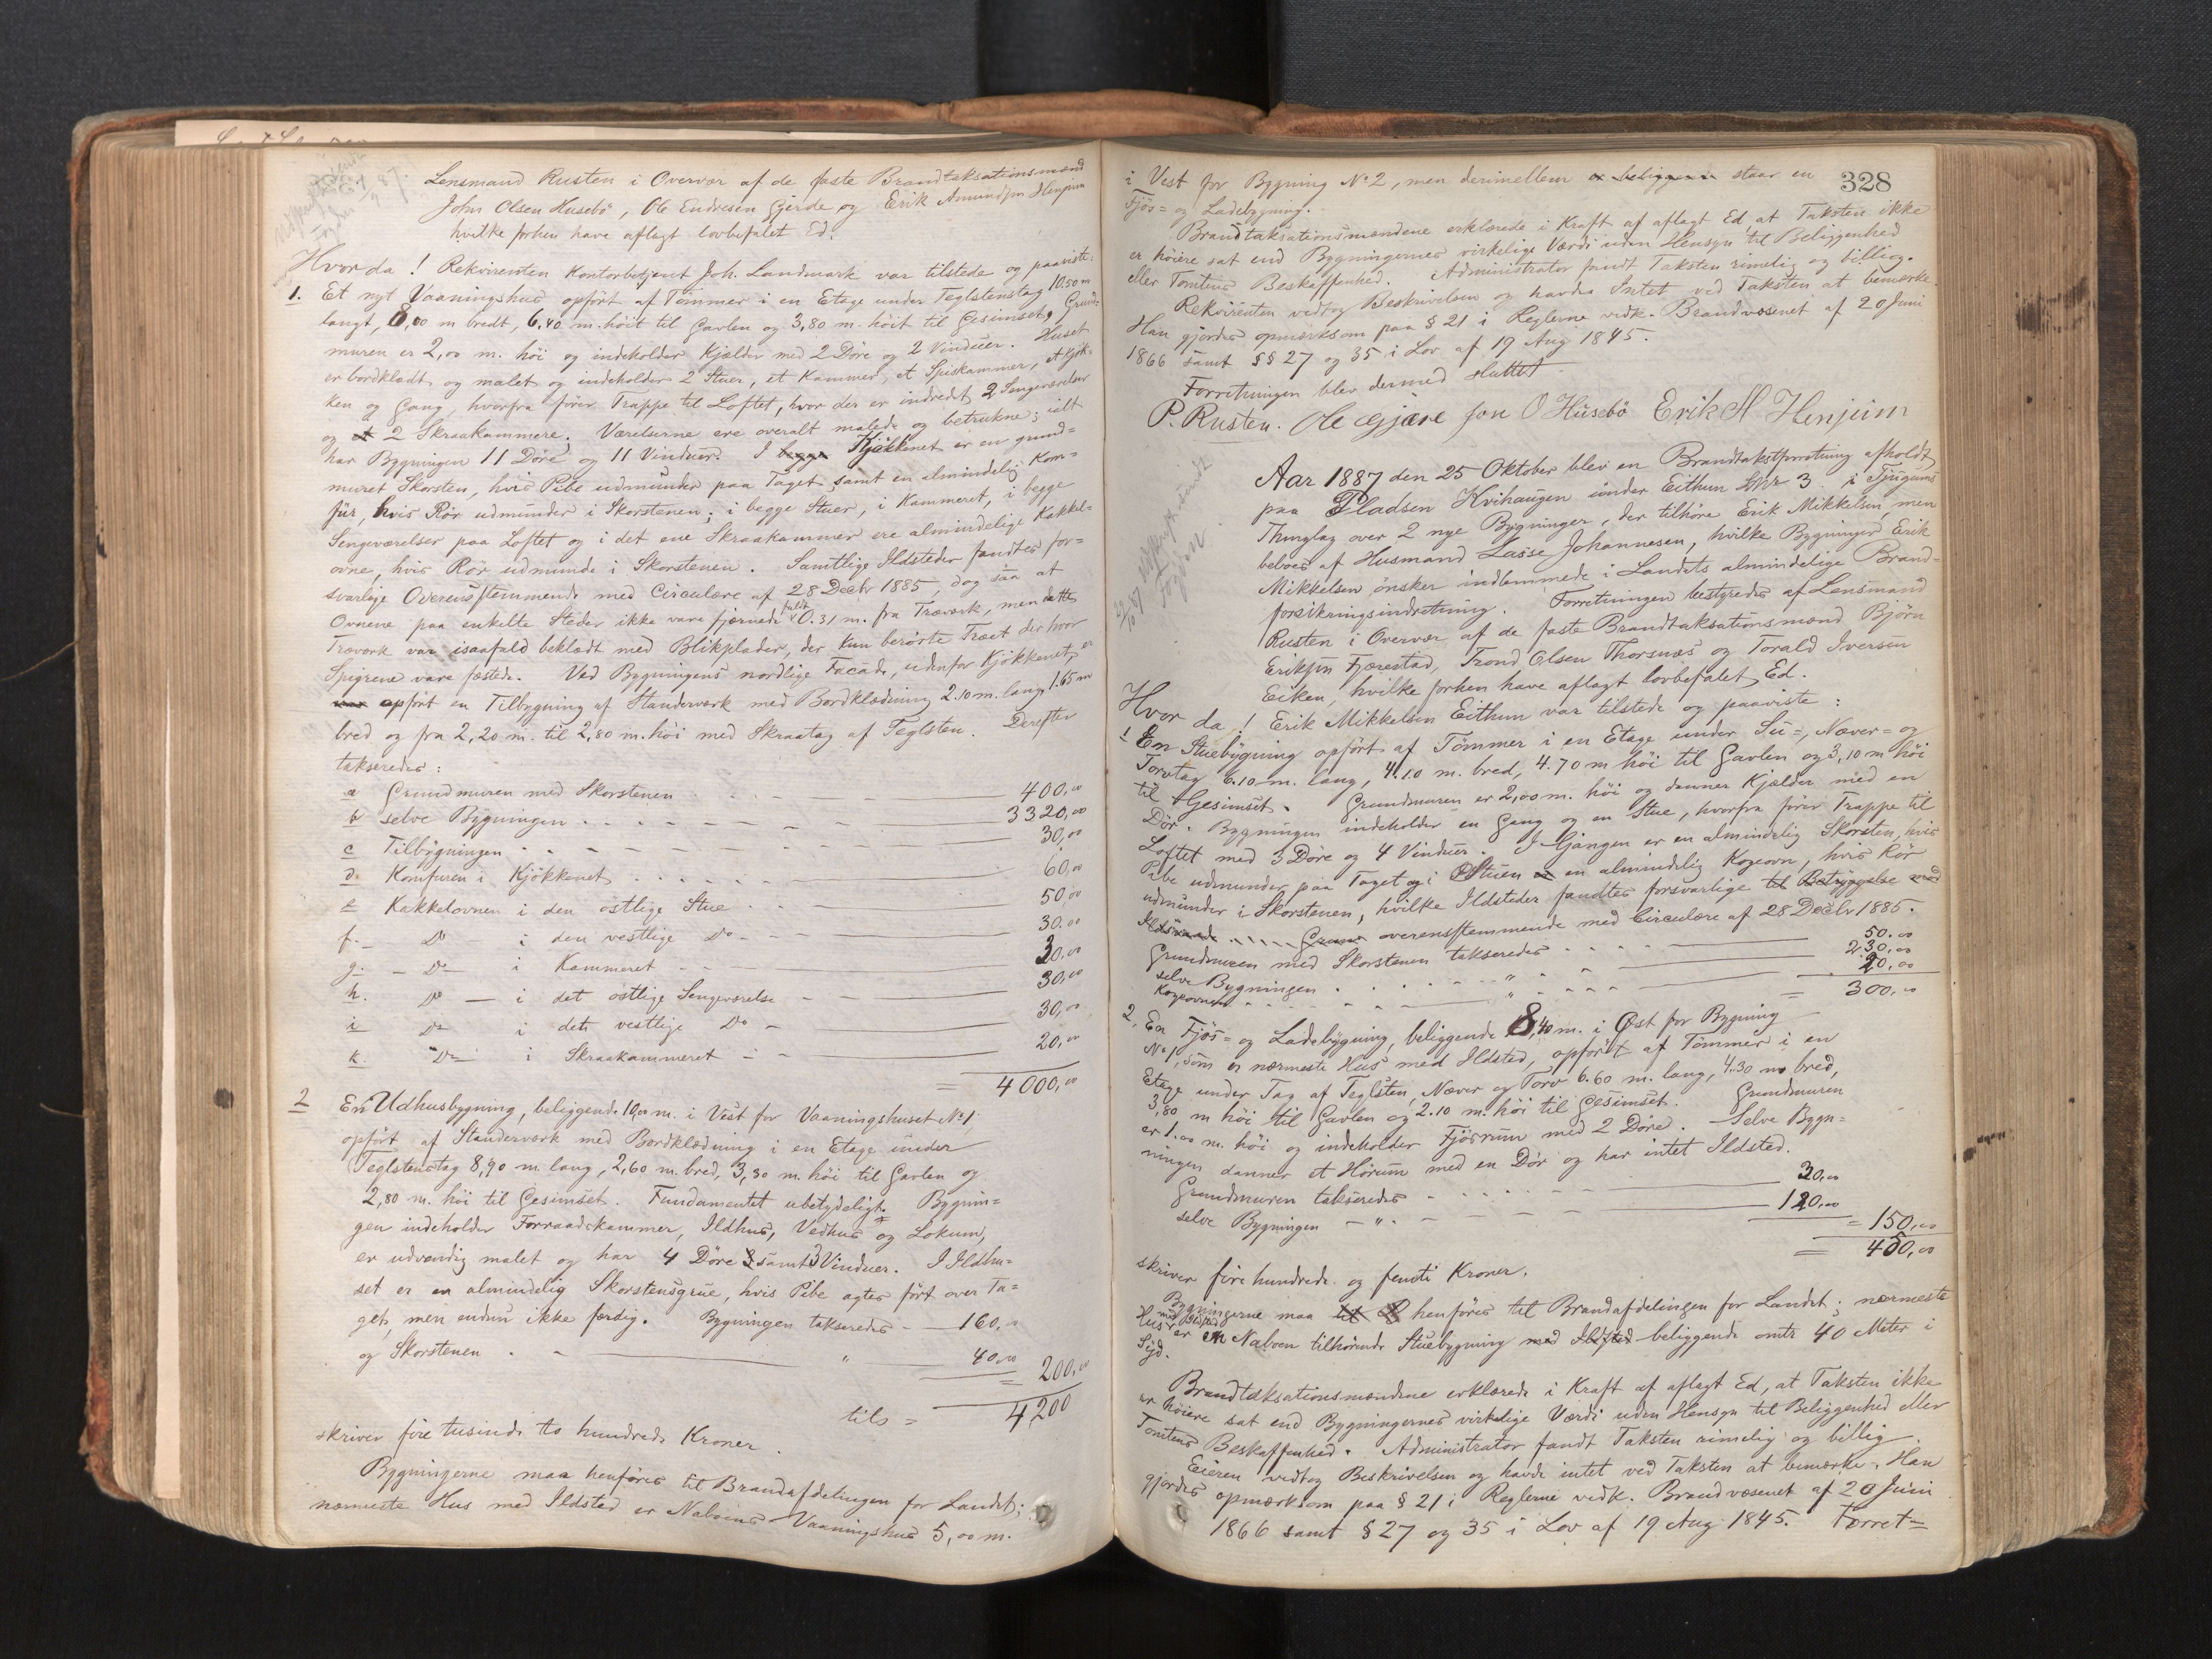 Lensmand Rusten i Overvær af de faste Brandtaksationsmænd
John Olsen Husebö, Ole Endresen Gjerde og Erik Amundsen Henjum
hvilke forhen have aflagt lovbefalet Ed.
Hvorda! Rekvirenten Kontorbetjent Joh. Landmark var tilstede og paaviste:
1. Et nyt Vaaningshus opfört af Tömmer i en Etage under Teglstenstag 10.50 m
langt, 8,00 m bredt, 6,40 m. höit til Gavlen og 3,80 m. höit til Gesimset, Grund-
muren er 2,00 m. höi og indeholder Kjælder med 2 Döre og 2 Vinduer. Huset
er bordklædt og malet og indeholder 2 Stuer, et Kammer, et Spiskammer, et Kjök-
ken og Gang, hvorfra förer Trappe til Loftet, hvor der er indredet 2 Sengeværelser
og et 2 Skraakammere. Værelserne ere overalt malede og betrukne; ialt
har Bygningen 11 Döre og 11 Vinduer. I begge Kjökkenet er en grund-
muret Skorsten, hvis Pibe udmunder paa Taget, samt en almindelig Kom-
für, hvis Rör udmunder i Skorstenen; i begge Stuer, i Kammeret, i begge
Sengeværelser paa Loftet og i det ene Skraakammer ere almindelige Kakkel-
ovne, hvis Rör udmunde i Skorstenen. Samtlige Ildsteder fandtes for-
svarlige Overensstemmende med Circulære af 28 Decbr 1885, dog saa at
Ovnene paa enkelte Steder ikke vare fjernede fuldt 0.31 m. fra Træværk, men dette
Træværk var isaafald beklædt med Blikplader, der kun berörte Træet der hvor
Spigrene vare fæstede. Ved Bygningens nordlige Facade, udenfor Kjökkenet, er
var opfört en Tilbygning af Standerværk med Bordklædning 2.10 m. lang, 1.65 m
bred og fra 2,20 m. til 2,80 m. höi med Skraatag af Teglsten. Derefter
takseredes:
a Grundmuren med Skorstenen 400,00
b selve Bygningen 3320,00
c Tilbygningen 30,00
d. Komfuren i Kjökkenet 60,00
e Kakkelovnen i den östlige Stue 50,00
f. Do i den vestlige Do 30.00
g. Do i Kammeret 30.00
h. Do i det östlige Sengeværelse 30,00
i Do i det vestlige Do 30,00
k. Do i Skraakammeret 20,00
= 4000,00
2 En Udhusbygning, beliggende 10,00 m. i Vest for Vaaningshuset No 1,
opfört af Standerværk med Bordklædning i en Etage under
Teglstenstag 8,90 m. lang, 2,60 m. bred, 3,30 m. höi til Gavlen og
2,80 m. höi til Gesimset. Fundamentet ubetydeligt. Bygnin-
gen indeholder Forraadskammer, Ildhus, Vedhus og Lokum,
er udvendig malet og har 4 Döre samt 3 Vinduer. I Ildhu-
set er en almindelig Skorstensgrue, hvis Pibe agtes fört over Ta-
get, men endnu ikke færdig. Bygningen takseredes 160,00
og Skorstenen " 40,00
= 200,00
tils = 4200
skriver fire tusinde to hundrede Kroner.
Bygningerne maa henföres til Brandafdelingen for Landet;
nærmeste Hus med Ildsted er Naboens Vaaningshus 5,00 m.
328
i Vest for Bygning No 2, men derimellem er beliggende staar en
Fjös- og Ladebygning.
Brandtaksationsmændene erklærede i Kraft af aflagt Ed, at Taksten ikke
er höiere sat end Bygningernes virkelige Værdi uden Hensyn til Beliggenhed
eller Tomtens Beskaffenhed. Administrator fandt Taksten rimelig og billig.
Rekvirenten vedtog Beskrivelsen og havde Intet ved Taksten at bemærke.
Han gjordes opmærksom paa § 21 i Reglerne vedk. Brandvæsenet af 20 Juni
1866 samt §§ 27 og 35 i Lov af 19 Aug 1845.
Forretningen blev dermed sluttet
P. Rusten. Ole E Gjære Jon O Husebö Erik A Henjum
Aar 1887 den 25 Oktober blev en Brandtakstforretning afholdt
paa Pladsen Kvihaugen under Eithun Lnr 3 i Tjugums
Thinglag over 2 nye Bygninger, der tilhöre Erik Mikkelsen, men
beboes af Husmand Lasse Johannesen, hvilke Bygninger Erik
Mikkelsen önsker indlemmede i Landets almindelige Brand-
forsikringsindretning. Forretningen bestyredes af Lensmand
Rusten i Overvær af de faste Brandtaksationsmænd Björn
Eriksen Fjærestad, Trond Olsen Thorsnæs og Torald Iversen
Eiken, hvilke forhen have aflagt lovbefalet Ed.
Hvor da! Erik Mikkelsen Eithun var tilstede og paaviste:
1 En Stuebygning opfört af Tömmer i en Etage under Su-, Næver- og
Torvtag 6.10 m. lang, 4.10 m. bred, 4.70 m höi til Gavlen og 3,10 m höi
til Gesimset. Grundmuren er 2,00 m. höi og danner Kjælder med en
Dör. Bygningen indeholder en Gang og en Stue, hvorfra förer Trappe til
Loftet med 3 Döre og 4 Vinduer. I Gangen er en almindelig Skorsten, hvis
Pibe udmunder paa Taget og i Stuen er en almindelig Kogeovn, hvis Rör
udmunder i Skorstenen, hvilke Ildsteder fandtes forsvarlige til Betryggelse med
overensstemmende med Circulære af 28 Decbr 1885.
Grundmuren med Skorstenen takseredes 50.00
selve Bygningen " 230,00
Kogeovnen " 20,00
= 300,00
2. En Fjös- og Ladebygning, beliggende 8,40 m. i Öst for Bygning
No 1, som er nærmeste Hus med Ildsted, opfört af Tömmer i en
Etage under Tag af Teglsten, Næver og Torv 6.60 m. lang, 4.30 m bred,
3,80 m höi til Gavlen og 2.10 m. höi til Gesimset. Grundmuren
er 1.00 m. höi og indeholder Fjösrum med 2 Döre. Selve Byg-
ningen danner et Hörum med en Dör og har intet Ildsted.
Grundmuren takseredes 30,00
selve Bygningen " 120,00
= 150,00
= 450,00
skriver fire hundrede og femti Kroner.
Bygningerne maa henföres til Brandafdelingen for Landet; nærmeste
Hus med Ildsted er en Naboen tilhörende Stuebygning med Ildsted beliggende omtr 40 Meter i
Syd.
Brandtaksationsmændene erklærede i Kraft af aflagt Ed, at Taksten ikke
er höiere sat end Bygningernes virkelige Værdi uden Hensyn til Beliggenhed eller
Tomtens Beskaffenhed. Administrator fandt Taksten rimelig og billig.
Eieren vedtog Beskrivelsen og havde intet ved Taksten at bemærke. Han
gjordes opmærksom paa § 21 i Reglerne vedk. Brandvæsenet af 20 Juni
1866 samt § 27 og 35 i Lov af 19 Aug 1845. Forret-